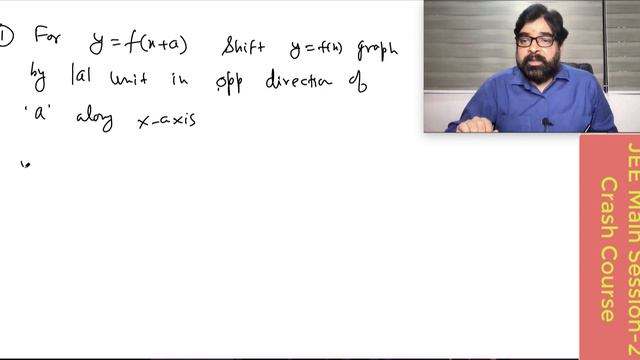 ① For y = f(x+a) Shift y = f(x) graph
by |a| unit in opp direction of
'a' along x-axis
JEE Main Session-2
Crash Course